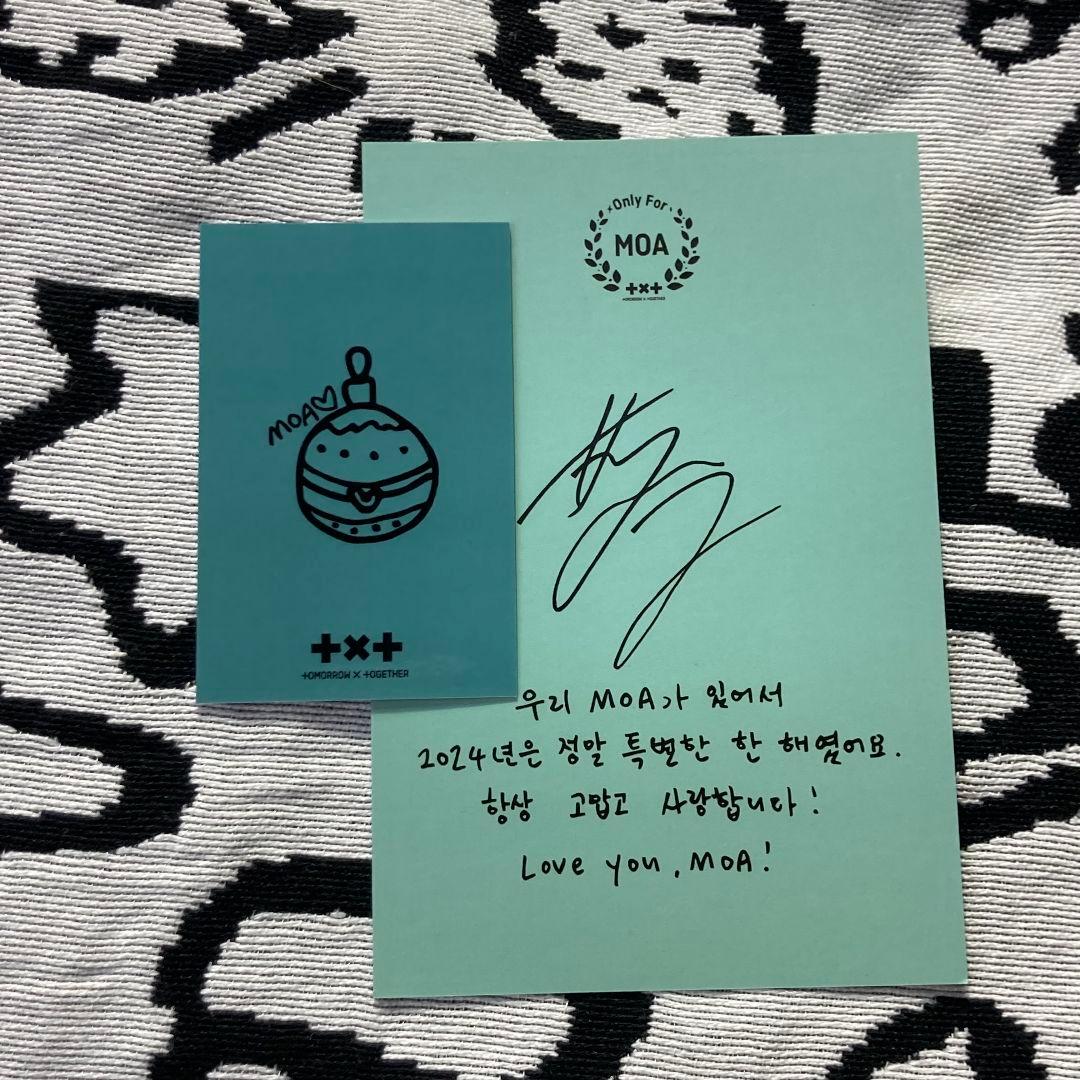 MOA♡
TOMORROW X TOGETHER
Only For
MOA
TOMORROW X TOGETHER
우리 MOA가 있어서
2024년은 정말 특별한 한 해였어요.
항상 고맙고 사랑합니다!
Love you, MOA!